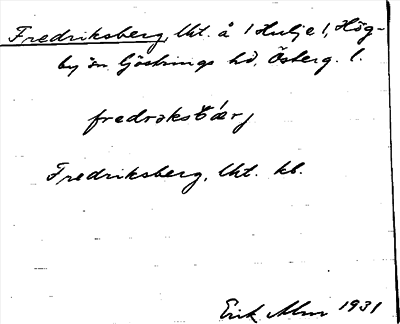 Fredriksberg, lht. å 1 Hulje 1, Hög-
by sn Göstrings hd, Österg. l.
fredrəks
Fredriksberg, lht. kb.
Erik Alm 1931